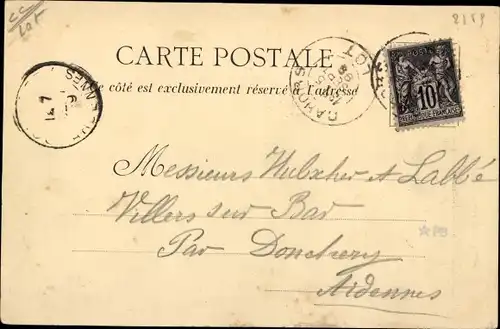 CC
LOT
2159
CARTE POSTALE
Ce côté est exclusivement réservé à l'adresse
DAHOMEY
10
RÉPUBLIQUE FRANÇAISE
Messieurs Hubscher et Labbé
Villers sur Bar
Par Donchery
Ardennes